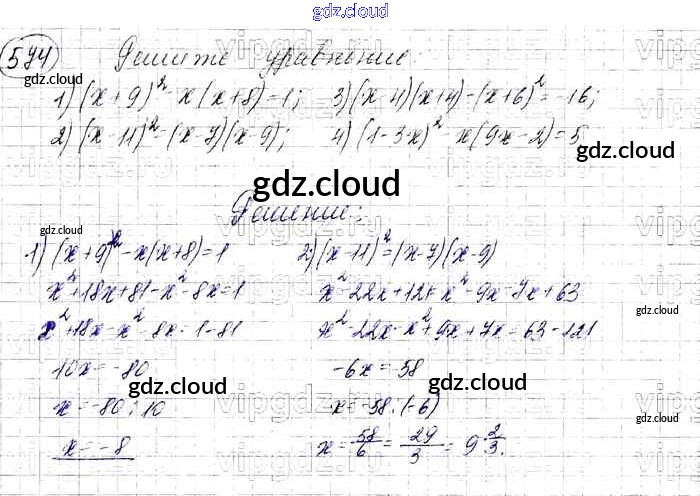 gdz.cloud
574) Решите уравнение:
1) (x+9)² - x(x+8)=1; 3) (x-4)(x+4)-(x+6)²=-16;
2) (x-11)²=(x-7)(x-9); 4) (1-3x)² - x(9x-2)=5
gdz.cloud
Решение:
1) (x+9)² - x(x+8)=1
x²+18x+81-x²-8x=1
x²+18x-x²-8x=1-81
10x=-80
x=-80:10
x=-8
2) (x-11)²=(x-7)(x-9)
x²-22x+121=x²-9x-7x+63
x²-22x-x²+9x+7x=63-121
-6x=58
x=-58:(-6)
x=58/6=29/3=9 2/3.
gdz.cloud
gdz.cloud
gdz.cloud
gdz.cloud
gdz.cloud
gdz.cloud
gdz.cloud
gdz.cloud